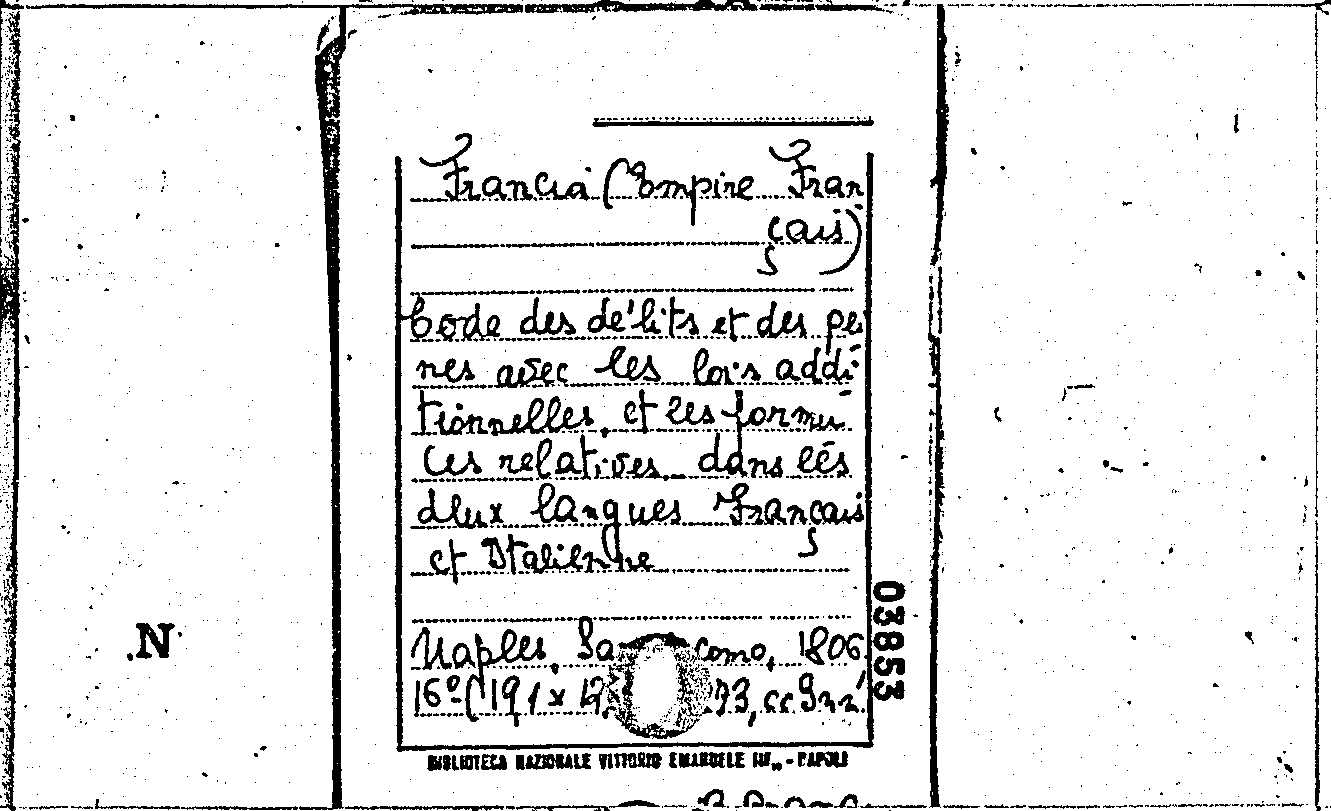 Francia (Empire Fran
çais)
Code des délits et des pei
nes avec les lois addi
tionnelles, et les formu
les relatives dans les
deux langues Français
et Italienne
Naples, 1806
16º (19,1 x
03853
.N
BIBLIOTECA NAZIONALE VITTORIO EMANUELE III - NAPOLI